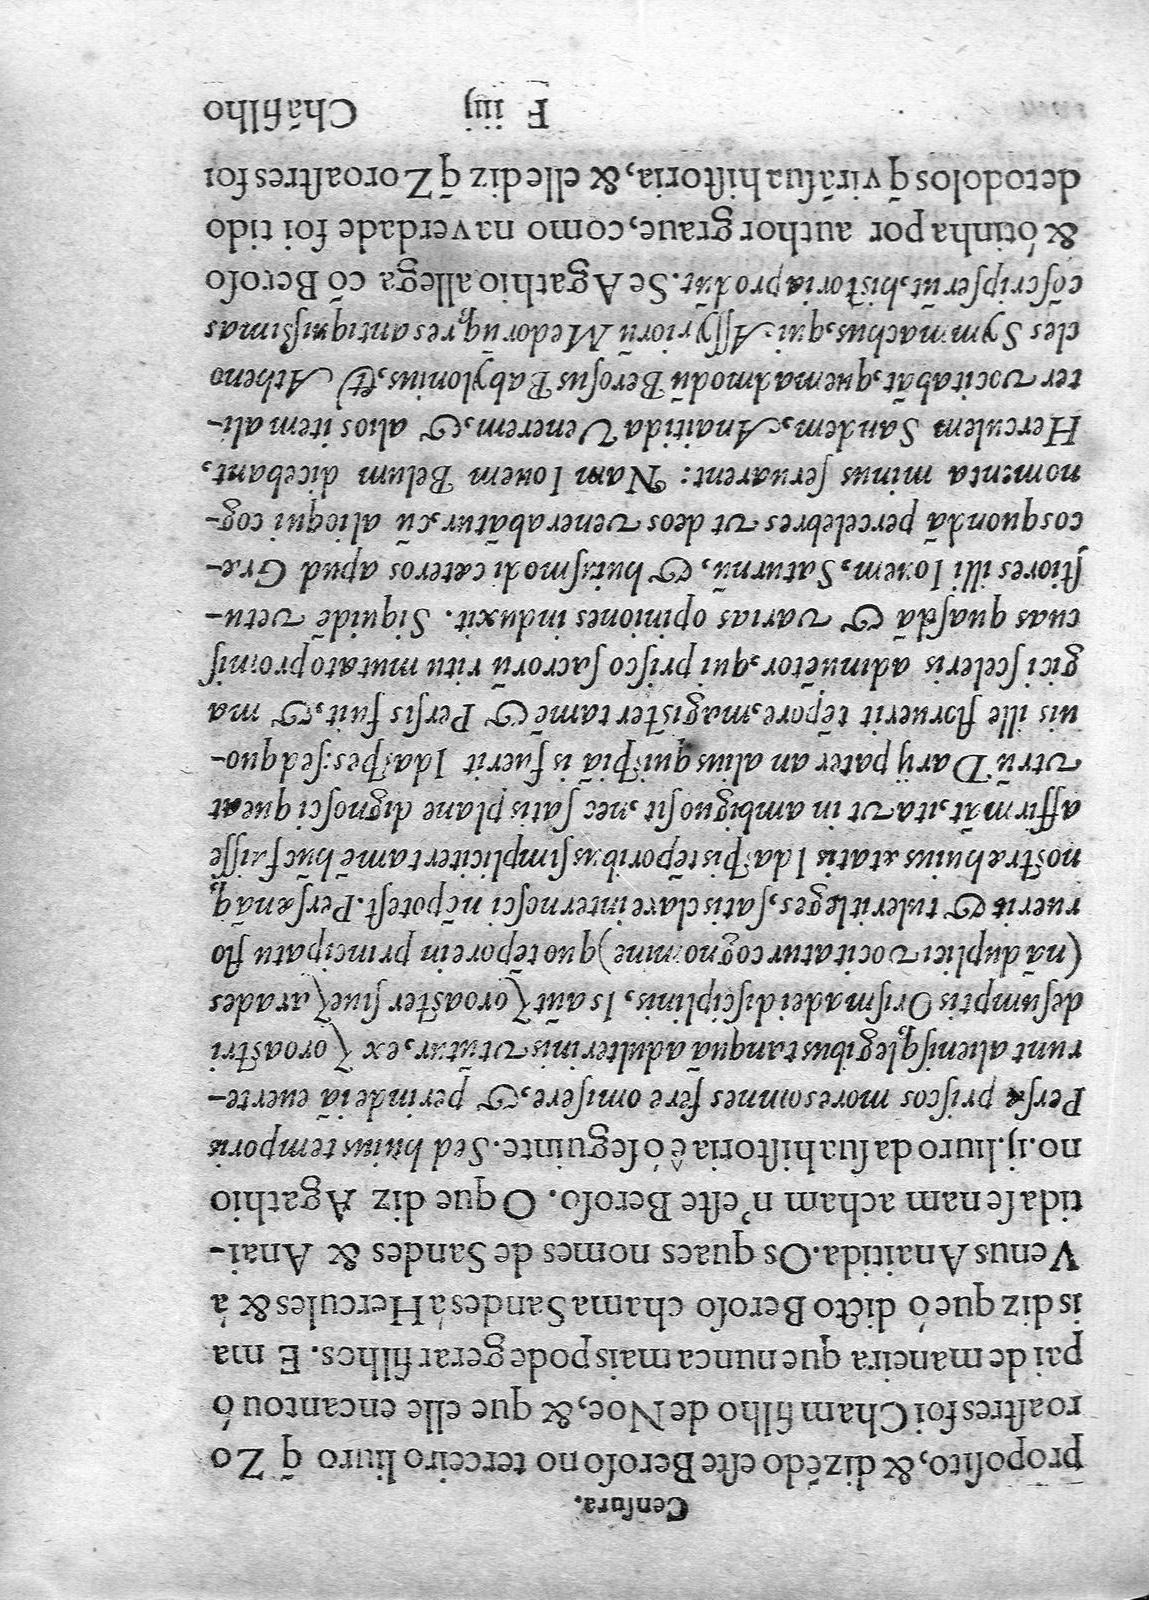 Cenſura.
propoſito, & dizẽdo eſte Beroſo no terceiro liuro q̃ Zo
roaſtres foi Cham filho de Noe, & que elle encantou ó
pai de maneira que nunca mais pode gerar filhos. E ma
is diz que ó dicto Beroſo chama Sandes á Hercules & á
Venus Anaitida. Os quaes nomes de Sandes & Anai-
tida ſe nam acham n'eſte Beroſo. O que diz Agathio
no .ij. liuro da ſua hiſtoria ê ó ſeguinte. Sed huius temporis
Perſæ priſcos mores omnes ferè omiſere, & perinde iã euerte-
runt alieniſq; legibus tanquã adulterinis vtũtur, ex Zoroaſtri
deſumptis Oriſmadei diſciplinis, Is aũt Zoroaſter ſiue Zarades
(nã duplici vocitatur cognomine) quo tẽpore in principatu flo
ruerit & tulerit leges, ſatis clare internoſci nõ poteſt. Perſæ nãq;
noſtræ huius ætatis Idaſpis tẽporibus ſimpliciter tamẽ hũc fuiſſe
affirmãt, ita vt in ambiguo ſit, nec ſatis plane dignoſci queat
vtrũ Darij pater an alius quiſpiã is fuerit Idaſpes: ſed quo-
uis ille floruerit tẽpore, magiſter tamẽ & Perſis fuit, & ma
gici ſceleris adinuẽtor, qui priſco ſacrorũ ritu mutato promiſ
cuas quaſdã & varias opiniones induxit. Siquidẽ vetu-
ſtiores illi Iouem, Saturnũ, & huiuſmodi cæteros apud Græ-
cos quondã percelebres vt deos venerabãtur, cũ alioqui cog-
nomenta minus ſeruarent: Nam Iouem Belum dicebant,
Herculem Sandem, Anaitida Venerem, & alios item ali-
ter vocitabãt, quemadmodũ Beroſus Babylonius, & Atheno
cles Symmachus, qui Aſſyriorũ Medorũq; res antiquiſsimas
cõſcripſerũt, hiſtoria produt. Se Agathio allega cõ Beroſo
& ó tinha por author graue, como na verdade foi tido
de todolos q̃ virã ſua hiſtoria, & elle diz q̃ Zoroaſtres foi
F iiij Chã filho